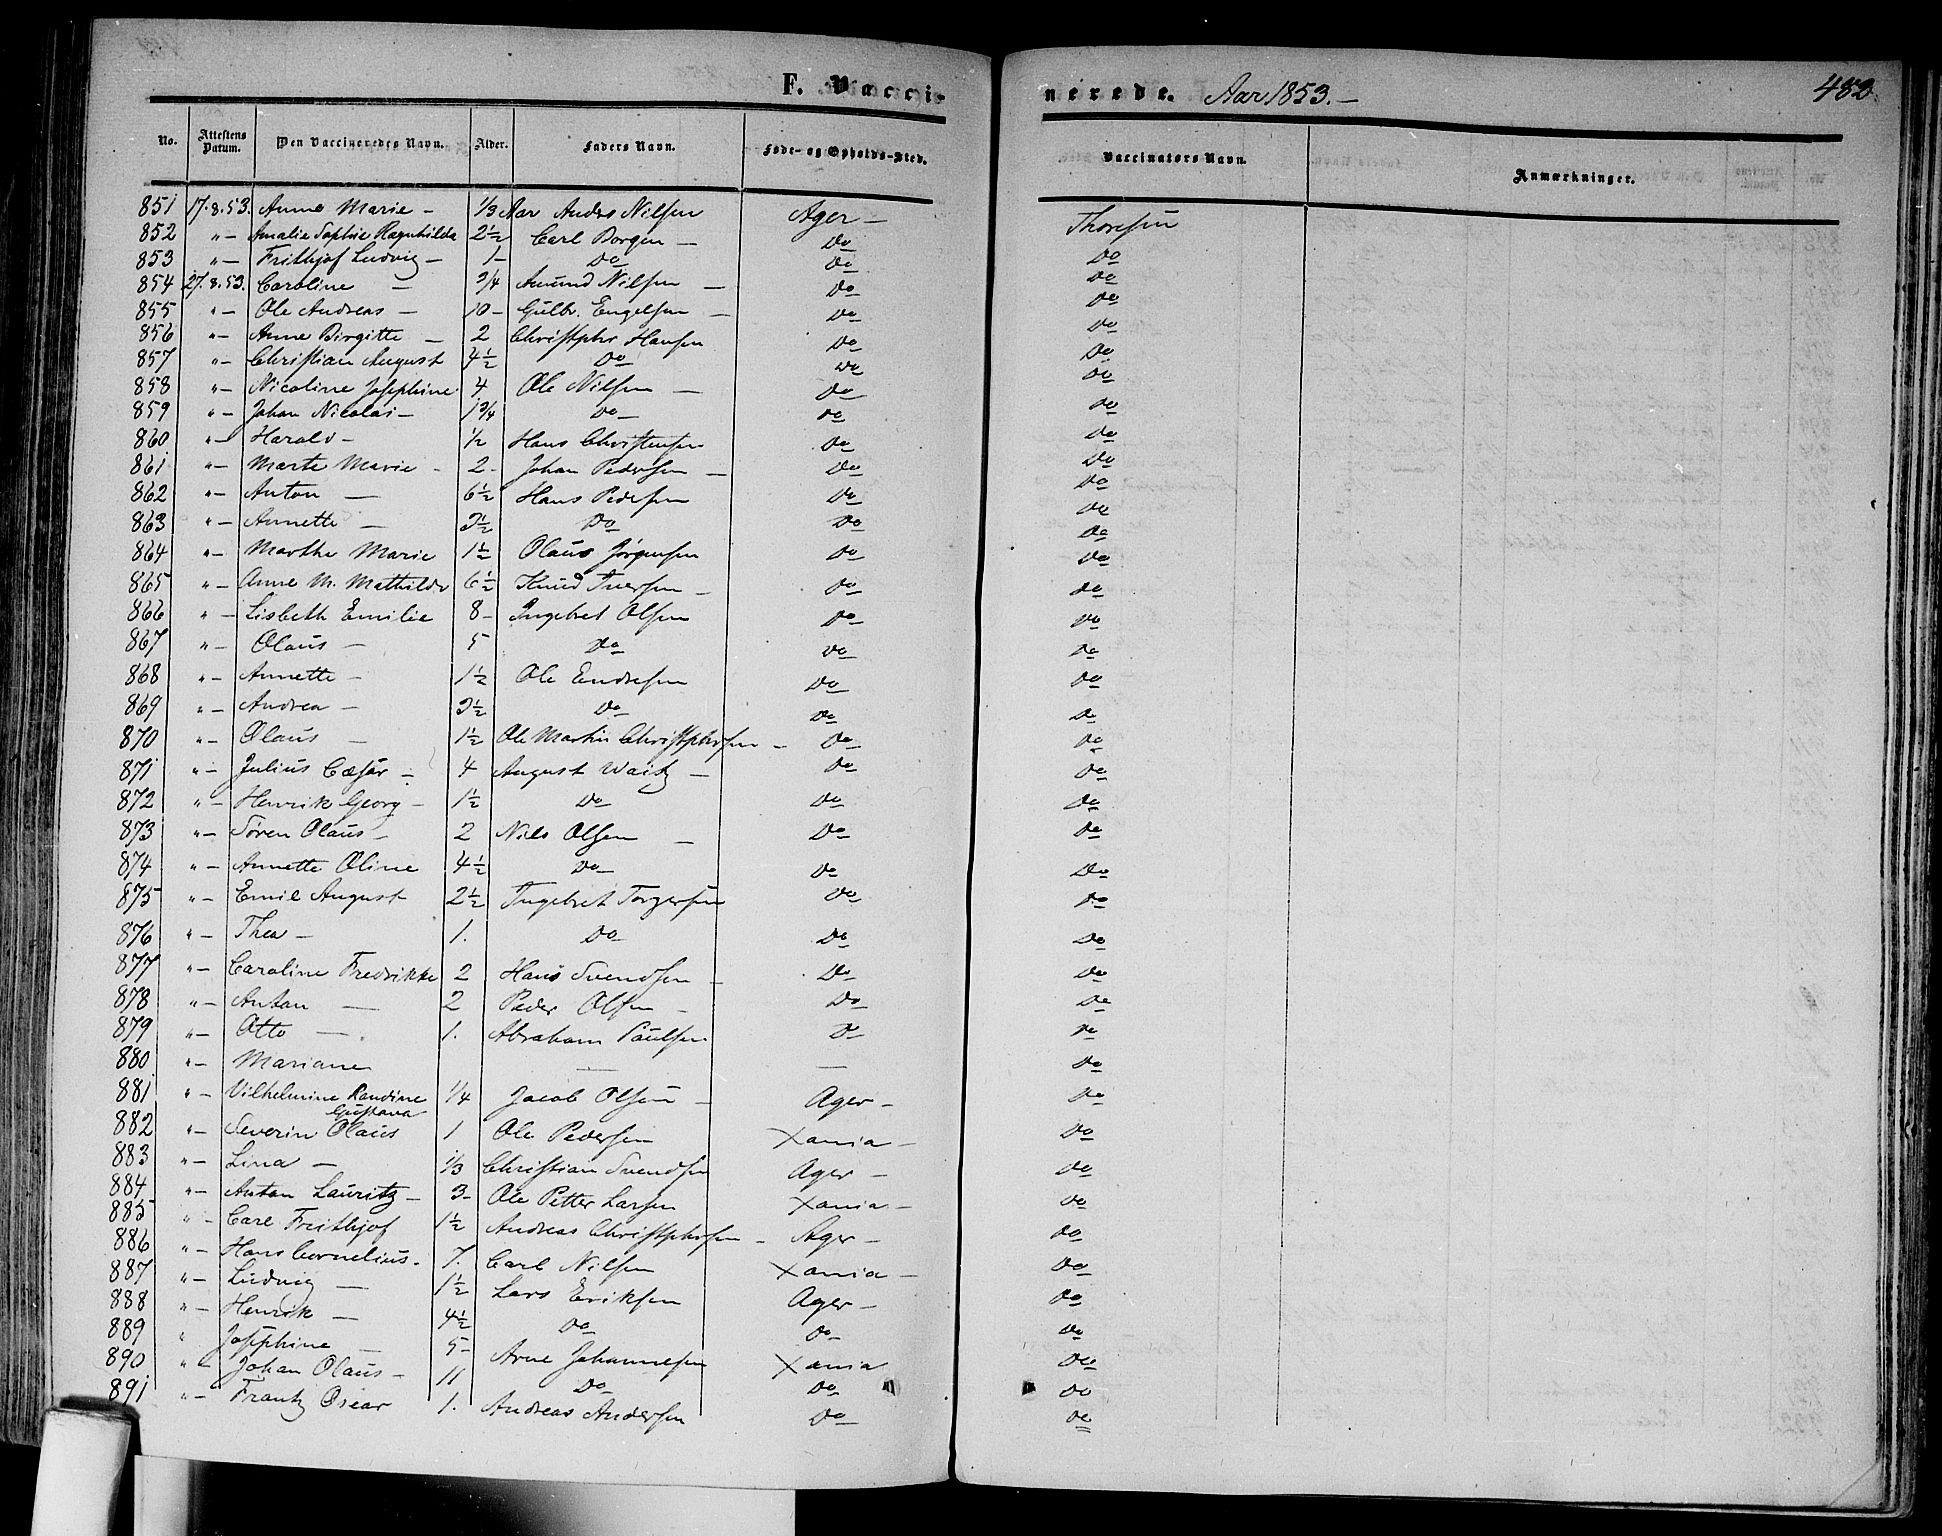 F. Vacci-
nerede. Aar 1853.— 482
No. Attestens Datum. Den Vaccineredes Navn. Alder. Faders Navn. Føde- og Opholds-Sted. Vaccinators Navn. Anmærkninger.
851 17.8.53. Anne Marie — 1/3 Aar Anders Nilsen Ager — Thoresen
852 " — Amalie Sophie Ragnhilda 2½ Carl Borgen — Do Do
853 " — Frithjof Ludvig — 1 — Do Do Do
854 27.8.53. Caroline — 3/4 Amund Nilsen — Do Do
855 " — Ole Andreas — 10 — Gulbr. Engelsen — Do Do
856 " — Anne Birgitte — 2 Christphr Hansen Do Do
857 " — Christian August 4½ Do Do Do
858 " — Nicoline Josephine 4 Ole Nilsen — Do Do
859 " — Johan Nicolai — 1 3/4 Do Do Do
860 " — Harald — ½ Hans Christensen Do Do
861 " — Marte Marie - 2 - Johan Pedersen — Do Do
862 " — Anton — 6½ Hans Pedersen Do Do
863 " — Annette — 3½ Do Do Do
864 " — Marthe Marie 1½ Olaus Jørgensen Do Do
865 " — Anne M. Mathilde 6½ Knud Iversen — Do Do
866 " — Lisbeth Emilie 8 — Ingebret Olsen Do Do
867 " — Olaus — 5 Do Do Do
868 " — Annette — 1½ Ole Endresen Do Do
869 " — Andrea — 3½ Do Do Do
870 " — Olaus — 1½ Ole Martin Christphersen — Do Do
871 " — Julius Cæsar — 4 August Waitz — Do Do
872 " — Henrik Georg — 1½ Do Do Do
873 " — Søren Olaus — 2 Nils Olsen — Do Do
874 " — Annette Oline 4½ Do Do Do
875 " — Emil August 2½ Ingebret Torgersen Do Do
876 " — Thea — 1. Do Do Do
877 " — Caroline Fredrikke 2 Hans Svendsen — Do Do
878 " — Anton — 2 Peder Olsen — Do Do
879 " — Otto — 1. Abraham Paulsen Do Do
880 " — Mariane — — Do
881 " — Vilhelmine Randine Gustava 1/4 Jacob Olsen — Ager — Do
882 " — Severin Olaus 1 Ole Pedersen Xania — Do
883 " — Lina — 1/3 Christian Svendsen Ager — Do
884 " — Anton Lauritz — 3 — Ole Petter Larsen Xania — Do
885 " — Carl Frithjof 1½ Andreas Christphersen — Ager — Do
886 " — Hans Cornelius. 7. Carl Nilsen Xania — Do
887 " — Ludvig — 1½ Lars Eriksen Ager — Do
888 " — Henrik — 4½ Do Do Do
889 " Josephine — 5 — Arne Johannesen Xania Do
890 " — Johan Olaus — 11 Do Do Do
891 " — Frantz Oscar 1. Andreas Andersen Do Do